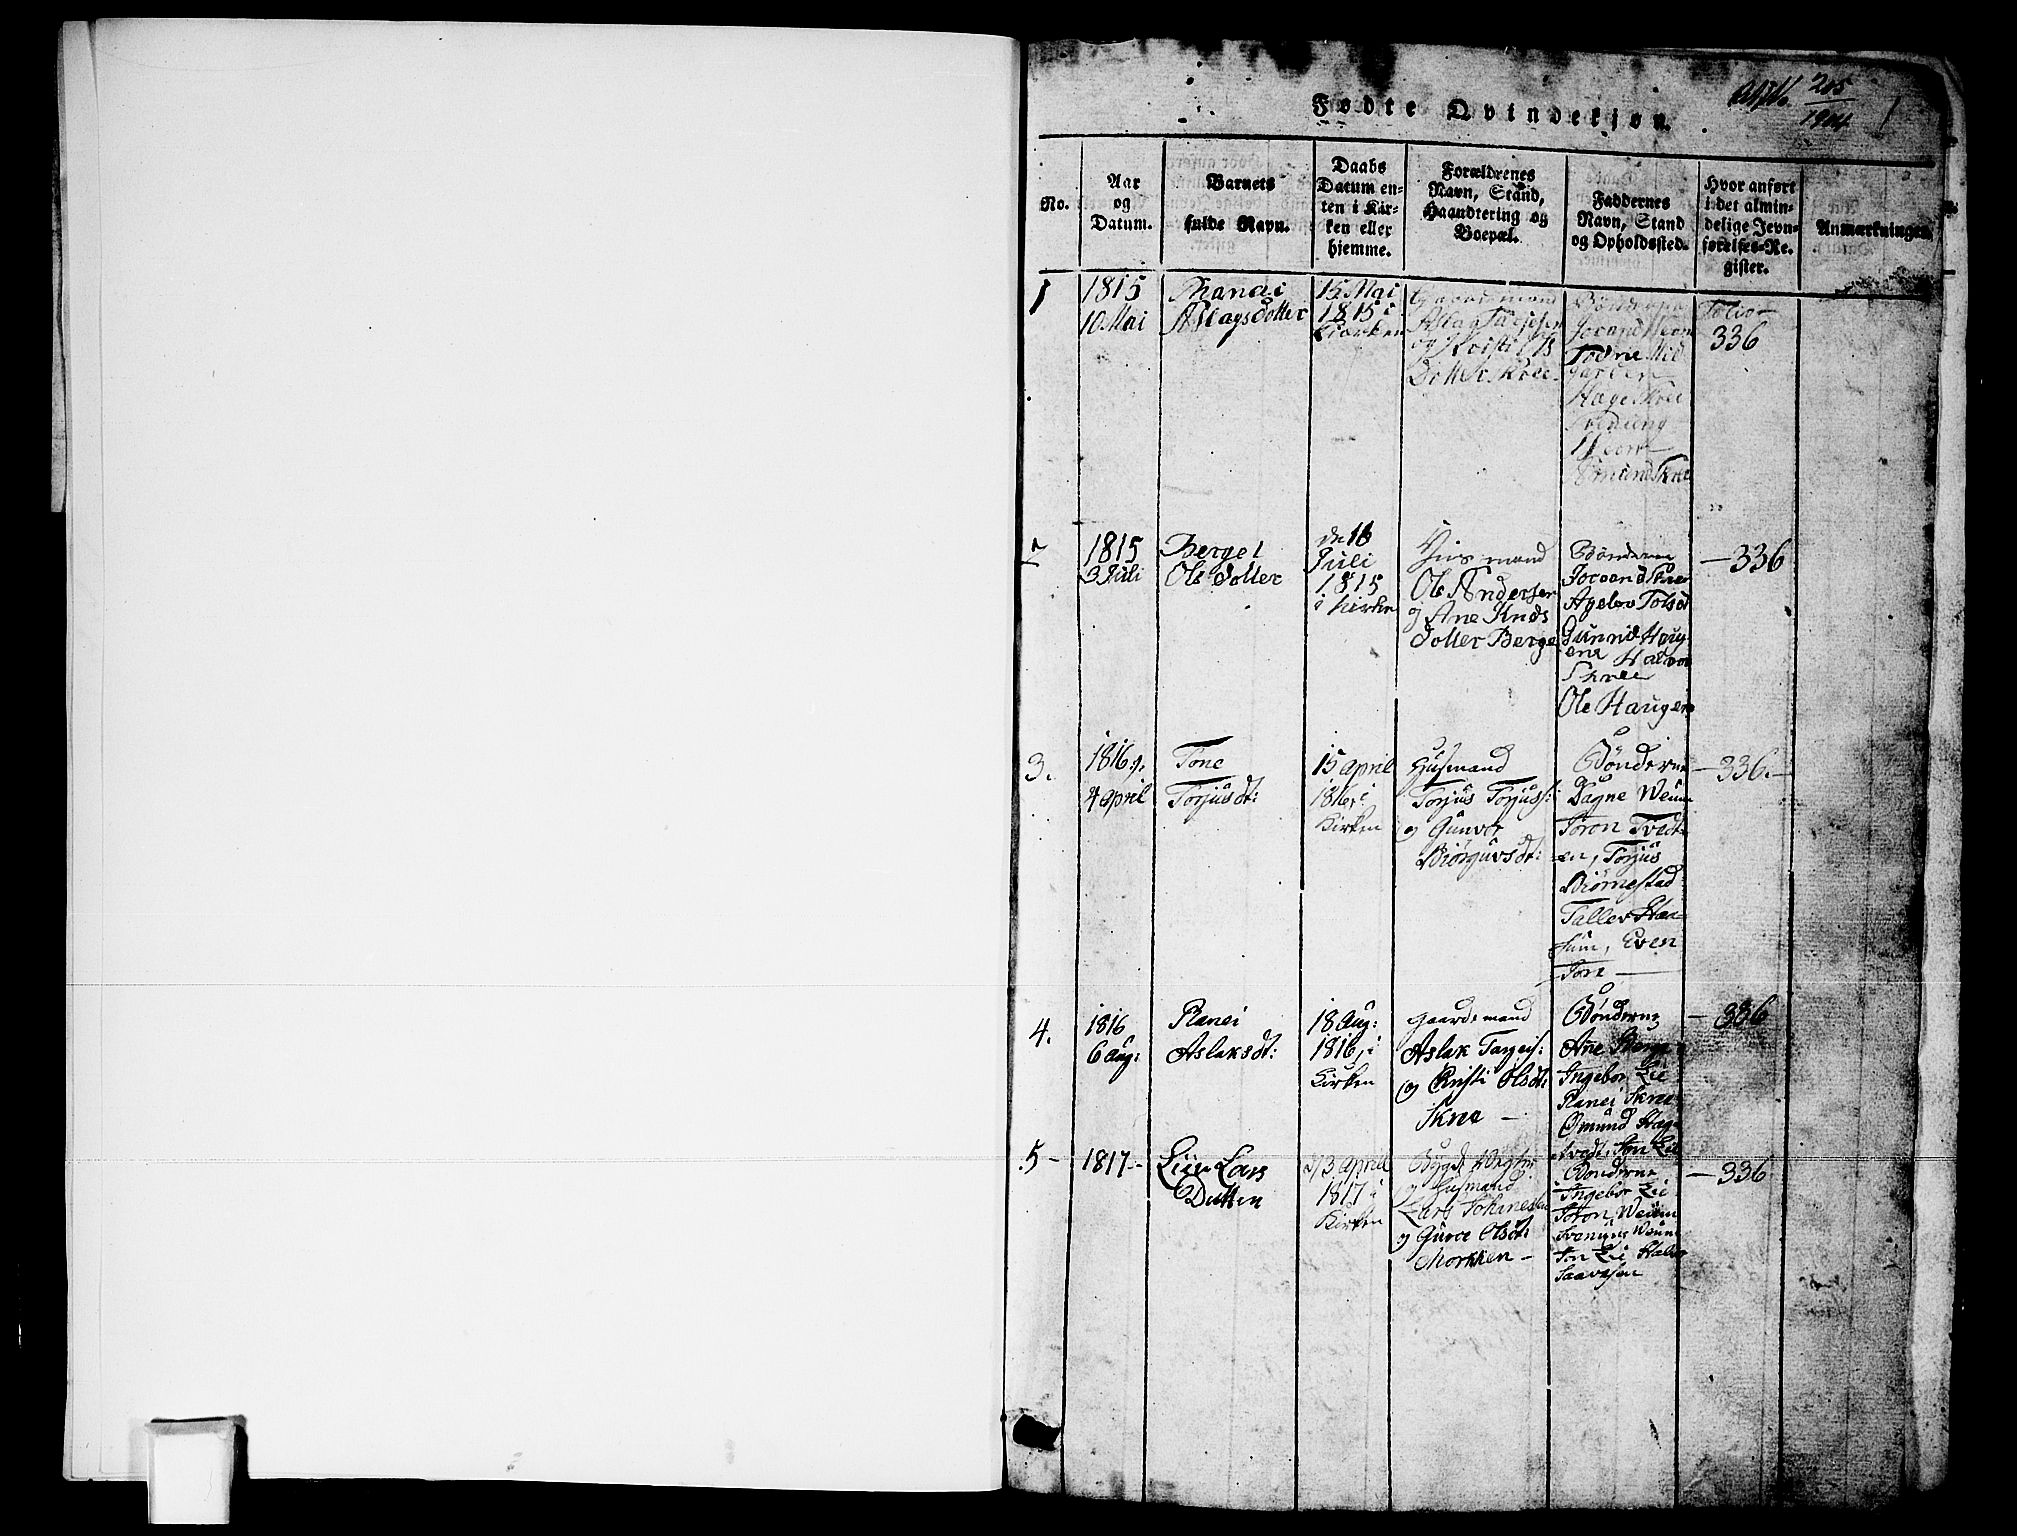 205
1904
1
Fødte Qvindekjøn.
No.
Aar
og
Datum.
Barnets
fulde Navn.
Daabs
Datum en-
ten i Kir-
ken eller
hjemme.
Forældrenes
Navn, Stand,
Haandtering og
Boepæl.
Faddernes
Navn, Stand
og Opholdssted.
Hvor anført
i det almin-
delige Jevn-
førelses-Re-
gister.
Anmærkninger.
1
1815
10 Mai
Ranei
Aslagsdotter
15 Mai
1815 i
Kiorken
Gaardmand
Aslag
og Kristi
Dotter Skree
Bønderne
Jorand
Tone Mid
garden
Hage Skree
Omund Skree
Folio
336
2
1815
3 Juli
Berget
Ole Dotter
de 16
Juli
1815
i Kirken
Huusmand
Ole Andersen
og Ane Knds
Dotter Berge
Bønderne
Joroand Skree
Gunnild Haug
ene Halvor
Skree
Ole Haugen
— 336
3.
1816 d.
4 april
Tone
Torjusdt:
15 april
1816, i
Kirken
Husmand
Torjus Torjuss:
og Gunvor
Biørguvsdt:
Bønderne
Dagne Weum
Toron Tvedt-
en, Torjus
Biørnestad
Tallev Haa-
sum, Even
Tore —
— 336. —
4.
1816
6 Aug:
Ranei
Aslaksdt:
18 Aug:
1816, i
Kirken
Gaardmand
Aslak Targeis:
og Kristi Olsdt:
Skree —
Bønderne
Ane Berge
Ingebor Lie
Ranei Skree
Ømund Hage
Tvedt, Jon Lie
— 336
5 —
1817 —
Liv Lars
Datter
d 3 april
1817 i
Kirken
Bygde Vegter
og Husmand
Lars Johnesen
og Guroe Olsdt:
Morkken —
Bønderne
Ingebor Lie
Toron Weum
Svenung Weum
Jon Lie Halvor
Saavesen
— 336